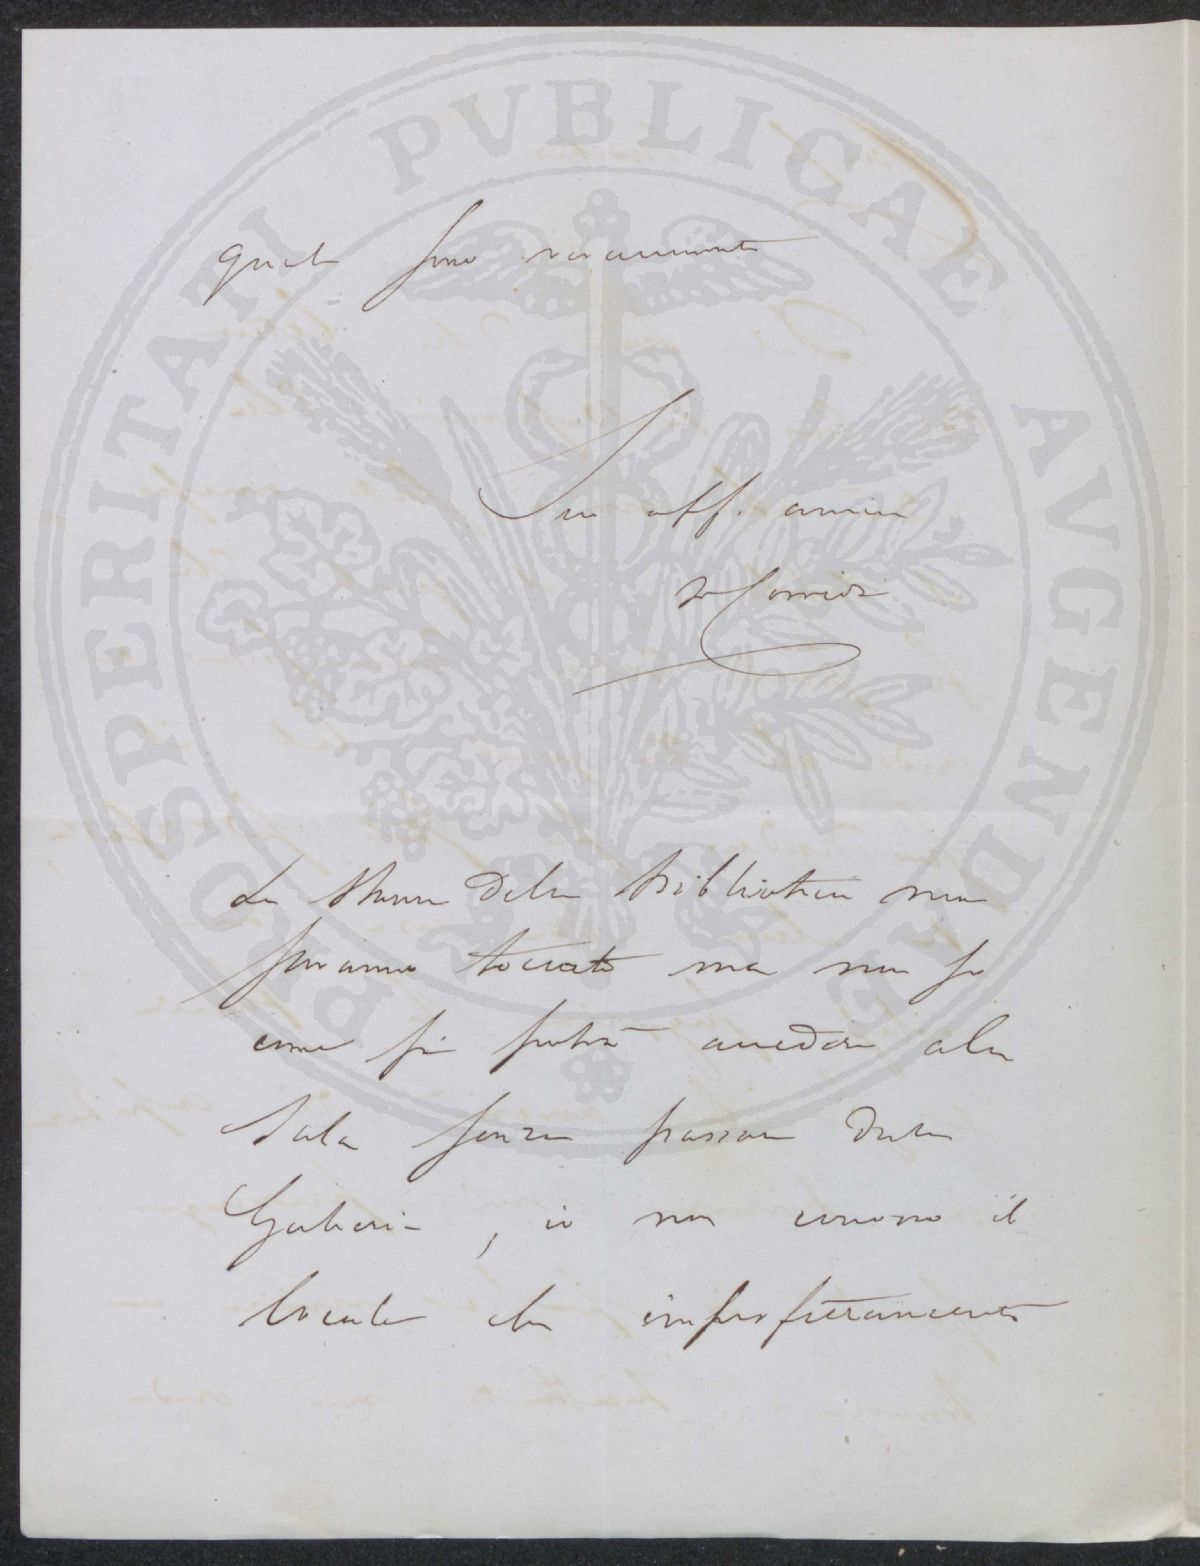 PROSPERITATI PVBLICAE AVGENDAE
quale sono veramente
Suo aff. amico
Corridi
Le Stanze della Biblioteca non
saranno toccate ma non so
come si potrà accedere alla
Sala senza passare dalla
Galleria, io non conosco il
locale che imperfettamente